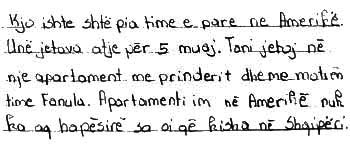 Kjo ishte shtë pia time e pare ne Amerikë.
Unë jetova atje për 5 muaj. Tani jetoj në
nje apartament me prinderit dhe me motrën
time Fanula. Apartamenti im në Amerikë nuk
ka aq hapësirë sa ai që kisha në Shqipëri.